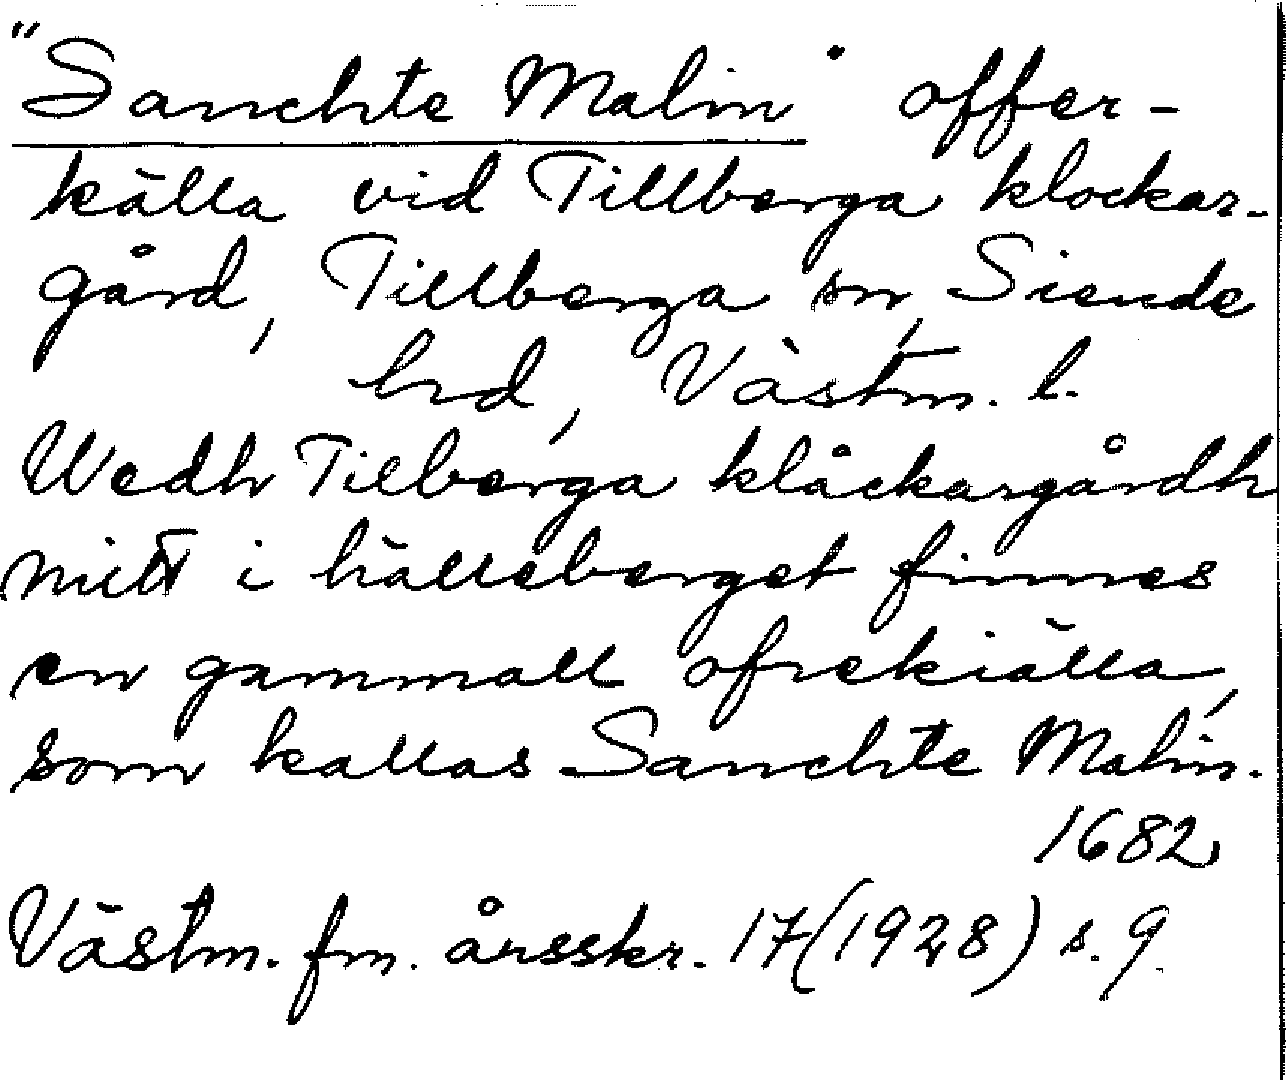 "Sanchte Malin" offer-
källa vid Tillberga klockar-
gård, Tillberga sn, Siende
hrd, Västm. l.
Wedh Tilberga klåckargårdh
mitt i hälleberget finnes
en gammall ofrekiälla,
som kallas Sanchte Malin.
1682,
Västm. fm. årsskr. 17 (1928) s. 9.